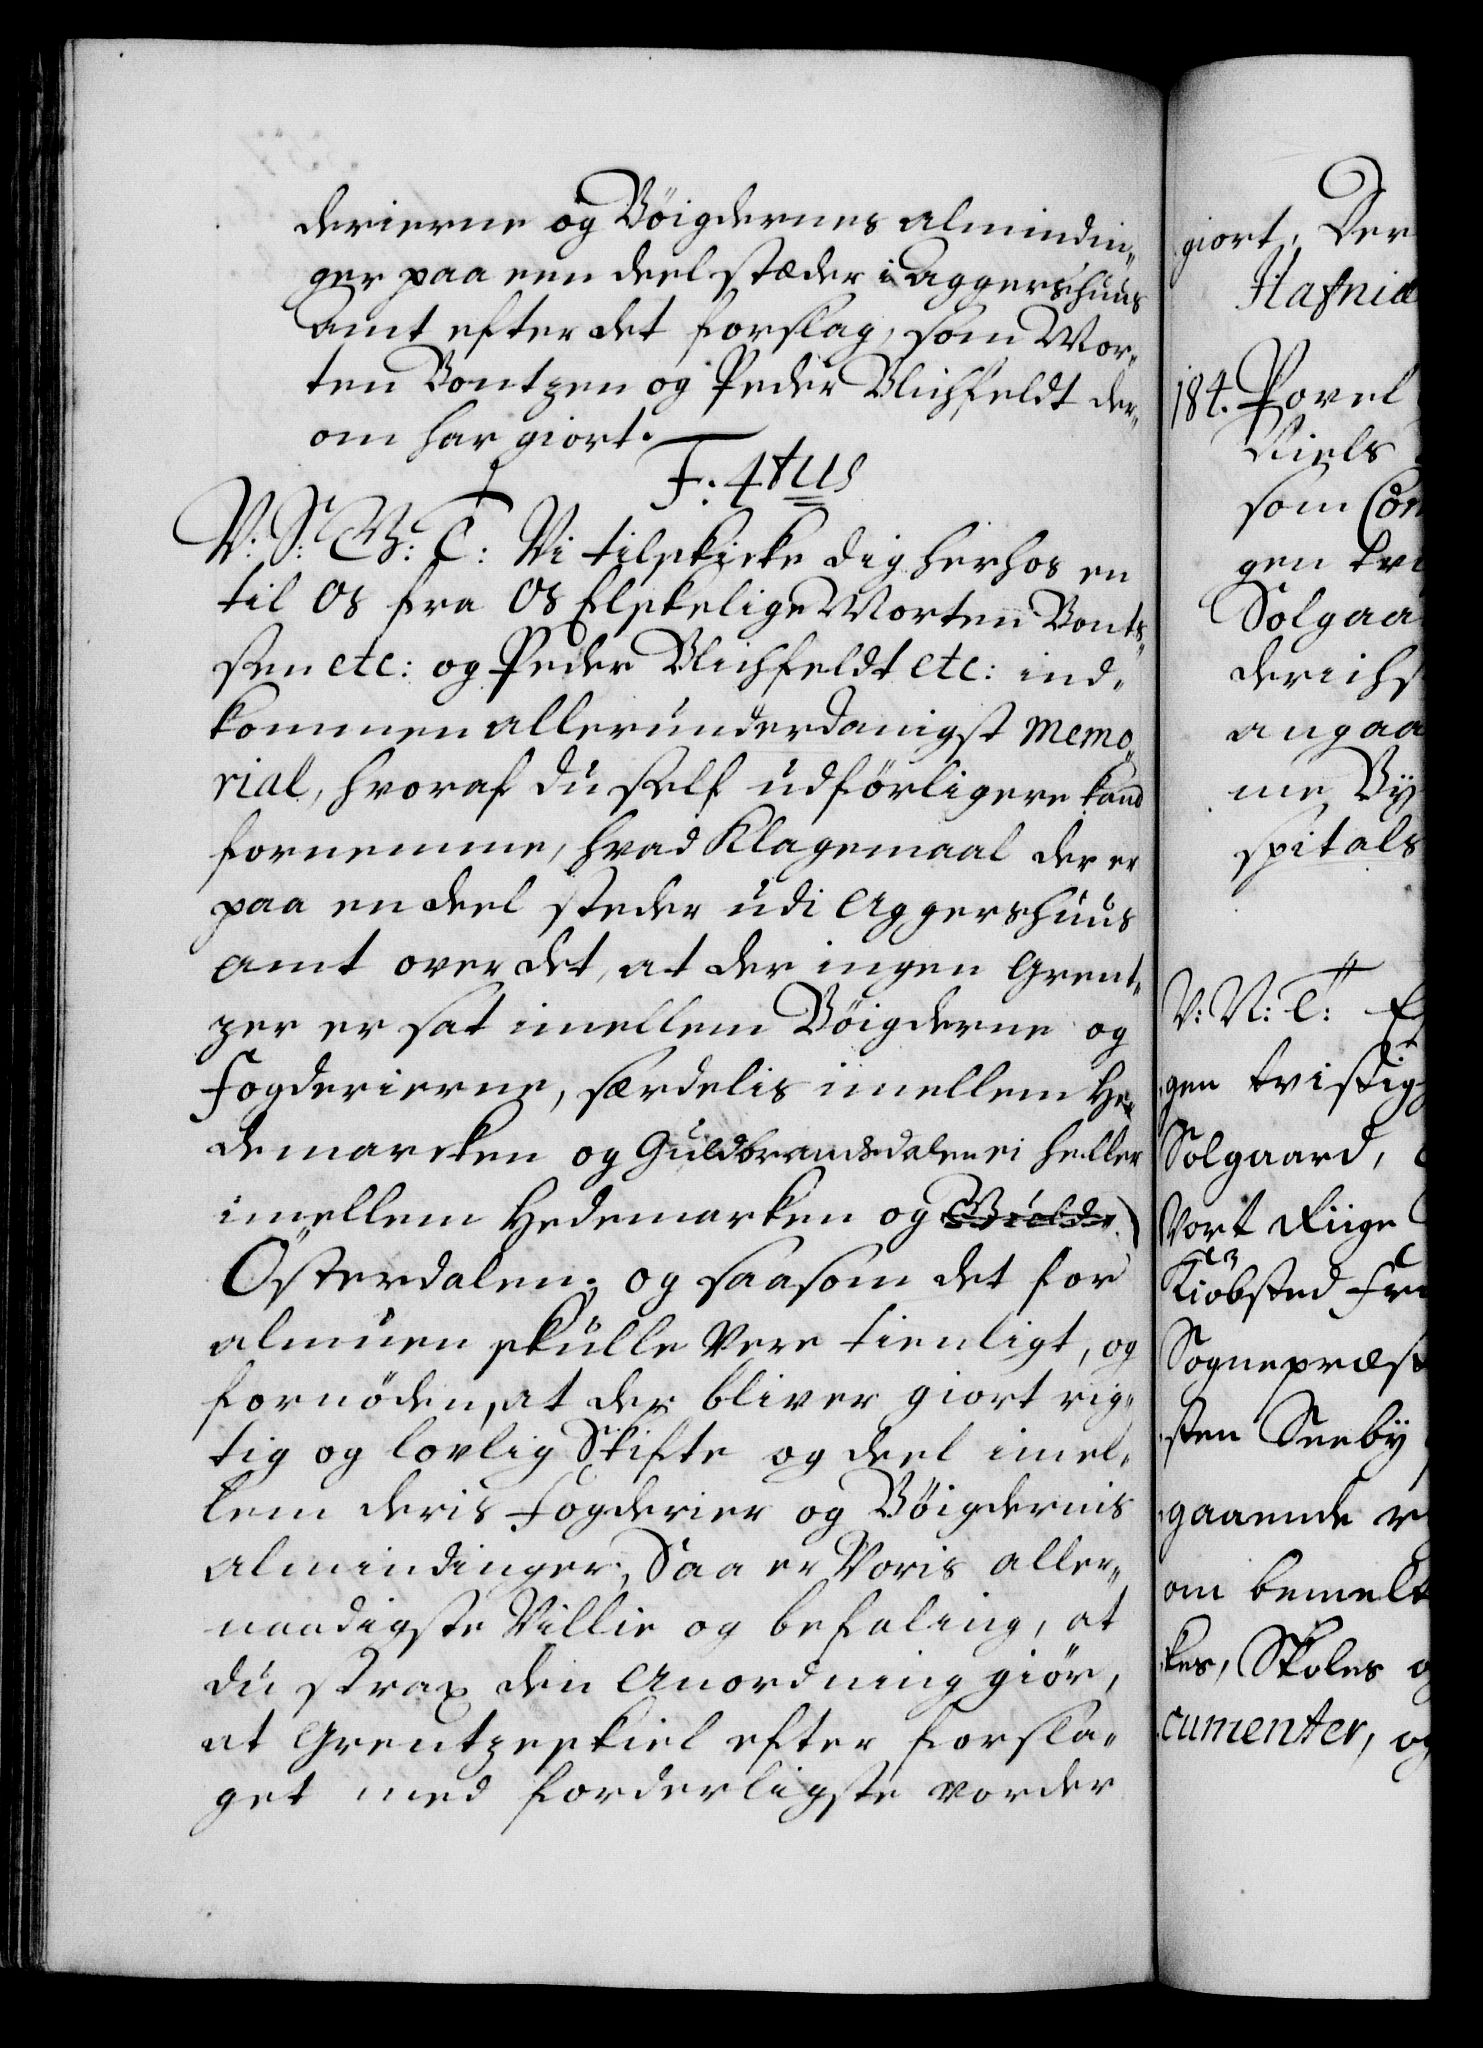 derierne og Böigdernes almindin„
ger paa een deel stæder i Aggershuus
Amt efter det forslag, som Mor„
ten Bontzen og Peder Blichfeldt der„
om har giort.
F: 4tus
V: S: G: T: Vi tilskicke dig herhos en
til OS fra OS Elskelige Morten Bont„
sen etc: og Peder Blichfeldt etc: ind„
kommen allerunderdanigst memo„
rial, hvoraf du self udförligere kand
fornemme, hvad Klagemaal der er
paa en deel steder udi Aggershuus
amt over det, at der ingen Grent„
zer er sat imellem Böigderne og
Fogderierne, særdelis imellem He„
demarcken og Guldbrandsdalen ei heller
imellem Hedemarken og
Österdalen; og saasom det for
almuen skulle være tienligt, og
fornöden, at der bliver giort rig„
tig og lovlig Skifte og deel imel„
lem deris Fogderier og Böigdernis
almindinger; Saa er Voris aller„
naadigste Villie og befaling, at
du strax den Anordning giör,
at Grentzeskiel efter forsla„
get med forderligste vorder
giort, Der
Hafniæ
184. Povel
Niels
som Com
gen tvi
Solgaa
derichs
angaa
me By
spitals
V: N: T:
gen tvistig
Solgaard,
Vort Riige
Kiobsted Fri
Sognepræst
sten Seeby
gaaende
om bemelt
kes, Skoles o
cumenter, og